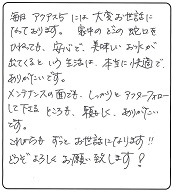 毎日 アクアス5 には 大変お世話に
なっております。 家中の どの 蛇口を
ひねっても、 安心で、 美味しい お水が
出てくると いう 生活は、 本当に快適で、
ありがたいです。
メンテナンスの面でも、 しっかりと アフターフォロー
して下さる ところも、 頼もしく、 ありがたい
です。
これからも ずっと お世話になります!!
どうぞ よろしく お願い致します!